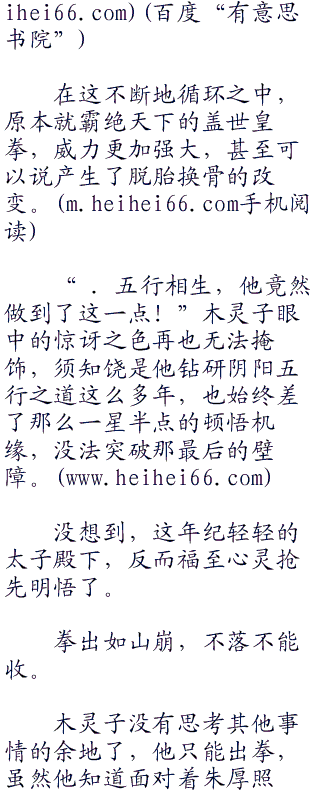 ihei66.com)(百度“有意思
书院”)
在这不断地循环之中，
原本就霸绝天下的盖世皇
拳，威力更加强大，甚至可
以说产生了脱胎换骨的改
变。(m.heihei66.com手机阅
读)
“．五行相生，他竟然
做到了这一点！”木灵子眼
中的惊讶之色再也无法掩
饰，须知饶是他钻研阴阳五
行之道这么多年，也始终差
了那么一星半点的顿悟机
缘，没法突破那最后的壁
障。(www.heihei66.com)
没想到，这年纪轻轻的
太子殿下，反而福至心灵抢
先明悟了。
拳出如山崩，不落不能
收。
木灵子没有思考其他事
情的余地了，他只能出拳，
虽然他知道面对着朱厚照